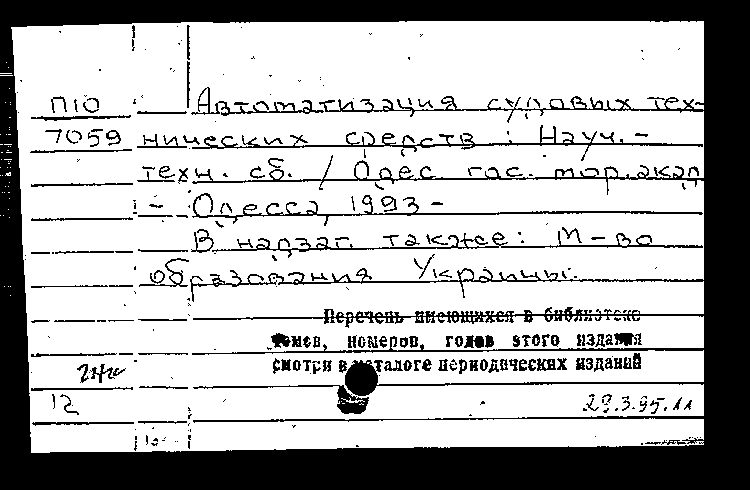 П10 Автоматизация судовых тех-
7059 нических средств : Науч. -
техн. сб. / Одес. гос. мор. акад
- Одесса, 1993 -
В надзаг. также: М-во
образования Украины.
Перечень имеющихся в библиотеке
томов, номеров, годов этого издания
смотри в каталоге периодических изданий
12 29.3.95.11